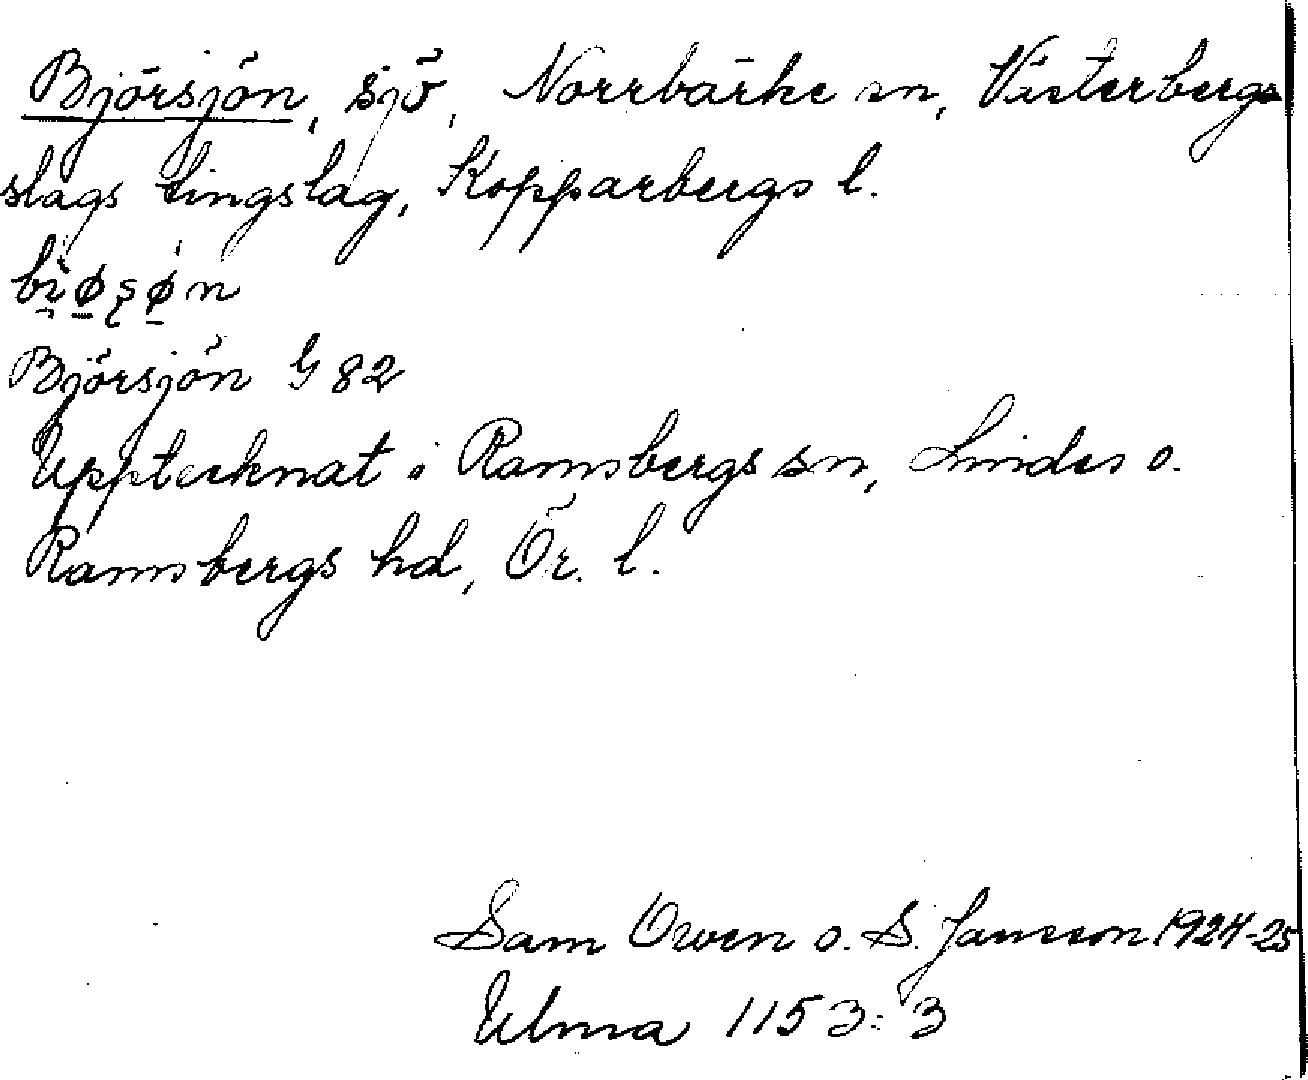 Björsjön, sjö, Norrbärke sn, Västerbergs
slags tingslag, Kopparbergs l.
Björsjön G 82
Upptecknat i Ramsbergs sn, Lindes o.
Ramsbergs hd, Ör. l.
Sam Owen o. S. Jansson 1924-25
Ulma 1153:3